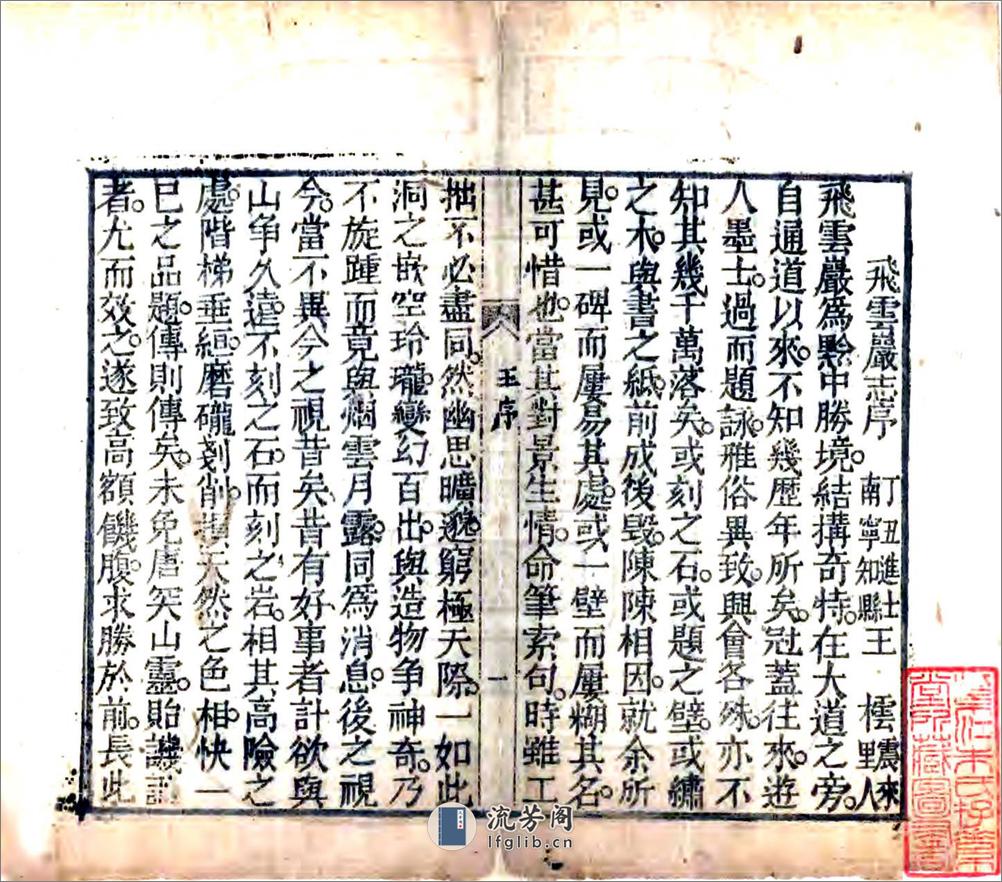 飛雲巖志序
丁丑進士南寧知縣王 櫄震來野人
飛雲巖爲黔中勝境。結搆奇特。在大道之旁。
自通道以來。不知幾歷年所矣。冠蓋往來。遊
人墨士。過而題詠。雅俗異致。興會各殊。亦不
知其幾千萬落矣。或刻之石。或題之壁。或繡
之木。與書之紙。前成後毁。陳陳相因。就余所
見。或一碑而屢易其處。或一壁而屢糊其名。
甚可惜也。當其對景生情。命筆索句。時雖工
王序 一
拙不必盡同。然幽思曠邈。窮極天際。一如此
洞之嵌空玲瓏。變幻百出。與造物争神奇。乃
不旋踵而竟與烟雲月露。同爲消息。後之視
今。當不異今之視昔矣。昔有好事者計欲與
山争久遠。不刻之石。而刻之岩。相其高險之
處。階梯垂縆。磨礲剗削。損天然之色。相快一
巳之品題。傳則傳矣。未免唐突山靈。貽譏
者。尤而效之。遂致高額饑腹。求勝於前。長此
朱氏
堂所藏圖書
流芳阁
lfglib.cn